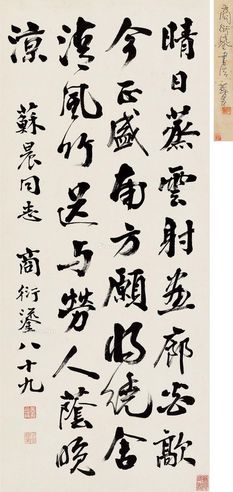 晴日蒸雲射畫廊炎歊
今正盛南方願將繞舍
清風竹送与勞人蔭晚
涼
蘇晨同志 商衍鎏八十九
商衍鎏書法